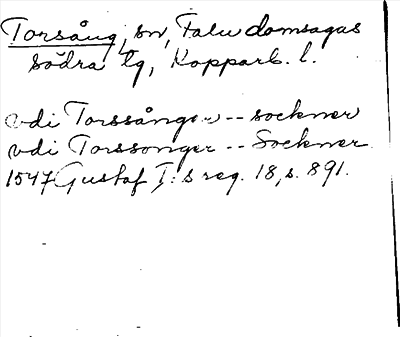 Torsång, sn, Falu domsagas
södra tg, Kopparb. l.
vdi Torssånger -- sockner
vdi Torssonger -- Sockner
1547 Gustaf I:s reg. 18, s. 891.